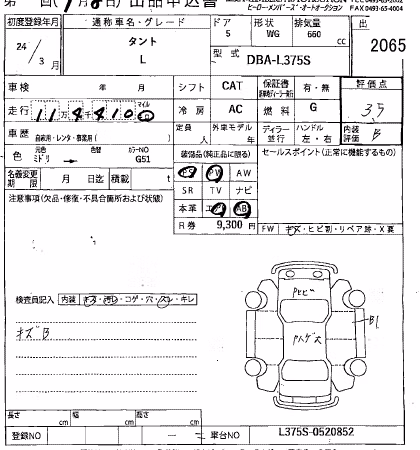 出品申込書
ヒーローメンバーズ・オートオークション FAX 0493-65-4004
初度登録年月 通称車名・グレード ドア 形状 排気量 出
24/3 タント L 5 WG 660 cc 2065
型式 DBA-L375S
車検 年 月 シフト CAT 保証書 有・無 評価点
走行 11万8810.0 マイル 冷房 AC 燃料 G 3.5
車歴 自家用・レンタ・事業用( ) 定員 人 外車モデル 年 ディーラー 並行 ハンドル 左・右 内装評価 B
色 元色 ミドリ → 色替 カラーNO G51 装備品(純正品に限る) セールスポイント(正常に機能するもの)
名義変更期限 月 日迄 積載 t PS PW AW
注意事項(欠品・修復・不具合箇所および状態) SR TV ナビ
本革 エアB AB
R券 9,300 円
FW キズ・ヒビ割・リペア跡・X要
検査員記入 内装 キズ・汚レ・コゲ・穴・スレ・キレ
キズB
B1
長さ cm 幅 cm 高さ cm
登録NO － 車台NO L375S-0520852